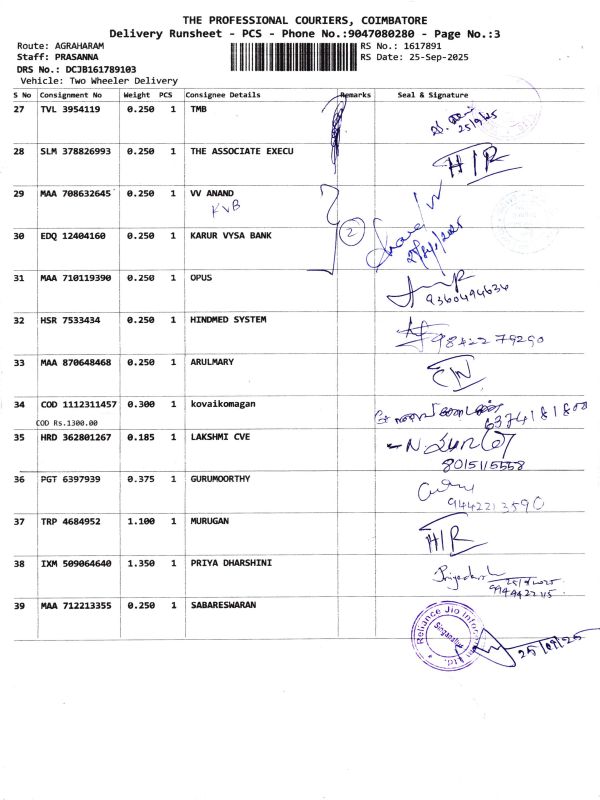 THE PROFESSIONAL COURIERS, COIMBATORE
Delivery Runsheet - PCS - Phone No.:9047080280 - Page No.:3
Route: AGRAHARAM RS No.: 1617891
Staff: PRASANNA RS Date: 25-Sep-2025
DRS No.: DCJB161789103
Vehicle: Two Wheeler Delivery
S No Consignment No Weight PCS Consignee Details Remarks Seal & Signature
27 TVL 3954119 0.250 1 TMB
25/9/25
28 SLM 378826993 0.250 1 THE ASSOCIATE EXECU H/R
29 MAA 708632645 0.250 1 VV ANAND
KVB
30 EDQ 12404160 0.250 1 KARUR VYSA BANK 2
31 MAA 710119390 0.250 1 OPUS
9360494634
32 HSR 7533434 0.250 1 HINDMED SYSTEM
9842279290
33 MAA 870648468 0.250 1 ARULMARY
34 COD 1112311457 0.300 1 kovaikomagan
6374181800
COD Rs.1300.00
35 HRD 362801267 0.185 1 LAKSHMI CVE
8015115558
36 PGT 6397939 0.375 1 GURUMOORTHY
9442213590
37 TRP 4684952 1.100 1 MURUGAN H/R
38 IXM 509064640 1.350 1 PRIYA DHARSHINI
25/9/2025
39 MAA 712213355 0.250 1 SABARESWARAN
Reliance Jio Infocomm Ltd.
Singanallur
25/09/25